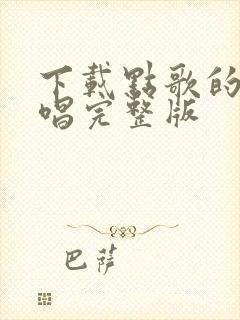 下載點歌的
唱完整版
巴薩